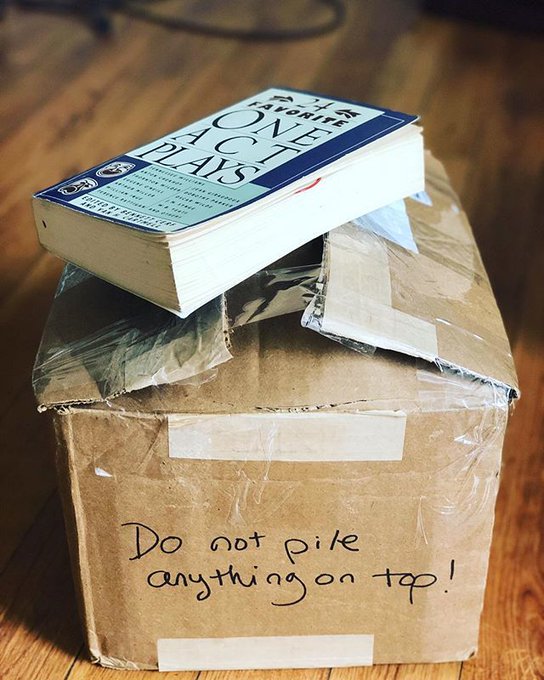 24
FAVORITE
ONE
ACT
PLAYS
EDITED BY BENNETT CERF
AND VAN H. CARTMELL
Do not pile
anything on top!